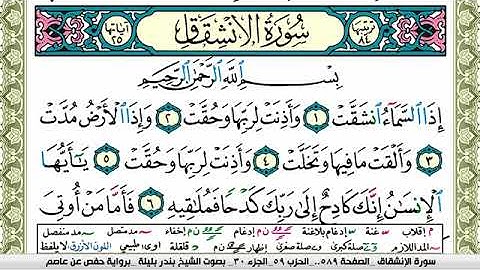 ترتيبها ٨٤ سورة الانشقاق آياتها ٢٥
بِسْمِ اللَّهِ الرَّحْمَٰنِ الرَّحِيمِ
إِذَا السَّمَاءُ انشَقَّتْ ١ وَأَذِنَتْ لِرَبِّهَا وَحُقَّتْ ٢ وَإِذَا الْأَرْضُ مُدَّتْ
٣ وَأَلْقَتْ مَا فِيهَا وَتَخَلَّتْ ٤ وَأَذِنَتْ لِرَبِّهَا وَحُقَّتْ ٥ يَا أَيُّهَا
الْإِنسَانُ إِنَّكَ كَادِحٌ إِلَىٰ رَبِّكَ كَدْحًا فَمُلَاقِيهِ ٦ فَأَمَّا مَنْ أُوتِيَ
م إقلاب غنة إدغام بلاغنة إدغام إخفاء مد متصل مد منفصل
المد اللازم صلة كبرى صلة صغرى إظهار قلقلة طبيعي اللون الأزرق لا يلفظ
سورة الإنشقاق _ الصفحة ٥٨٩.. الحزب ٥٩_الجزء ٣٠_ بصوت الشيخ بندر بليلة _برواية حفص عن عاصم